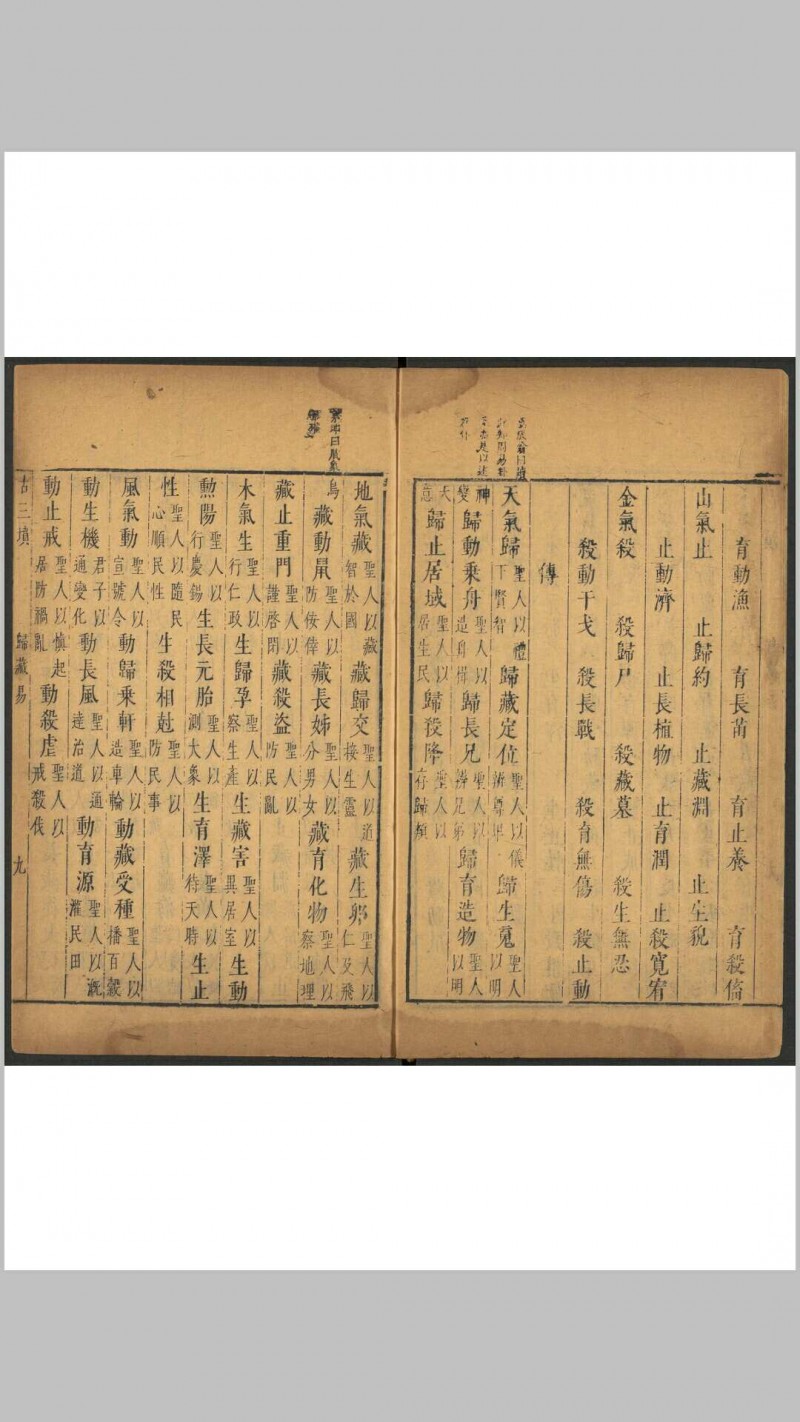 育動漁　育長苗　育止養　育殺脩
山氣止　止歸約　止藏淵　止生貌
止動濟　止長植物　止育潤　止殺寬宥
金氣殺　殺歸尸　殺藏墓　殺生無忍
殺動干戈　殺長戰　殺育無傷　殺止動
傳
天氣歸聖人以禮下賢智歸藏定位聖人以儀辨尊卑歸生䰟聖人以明
神變歸動乘舟聖人以造舟楫歸長兄聖人以辨兄弟歸育造物聖人以明
天意歸止居域聖人以居生民歸殺降聖人以存歸順
地氣藏聖人以藏智於國藏歸交聖人以道接生靈藏生卵聖人以仁及飛
鳥藏動鼠聖人以防侫倖藏長姊聖人以分男女藏育化物聖人以察地理
藏止重門聖人以謹啓閉藏殺盜聖人以防民亂
木氣生聖人以行仁政生歸孕聖人以察生產生藏害聖人以異居室生動
勲陽聖人以行慶錫生長元胎聖人以測大象生育澤聖人以待天時生止
性聖人以隨民心順民性生殺相尅聖人以防民事
風氣動聖人以宣號令動歸乘軒聖人以造車輪動藏受種聖人以播百穀
動生機君子以通變化動長風聖人以通達治道動育源聖人以溉灌民田
動止戒聖人以慎起居防禍亂動殺虐聖人以戒殺伐
古三墳　歸藏易　九